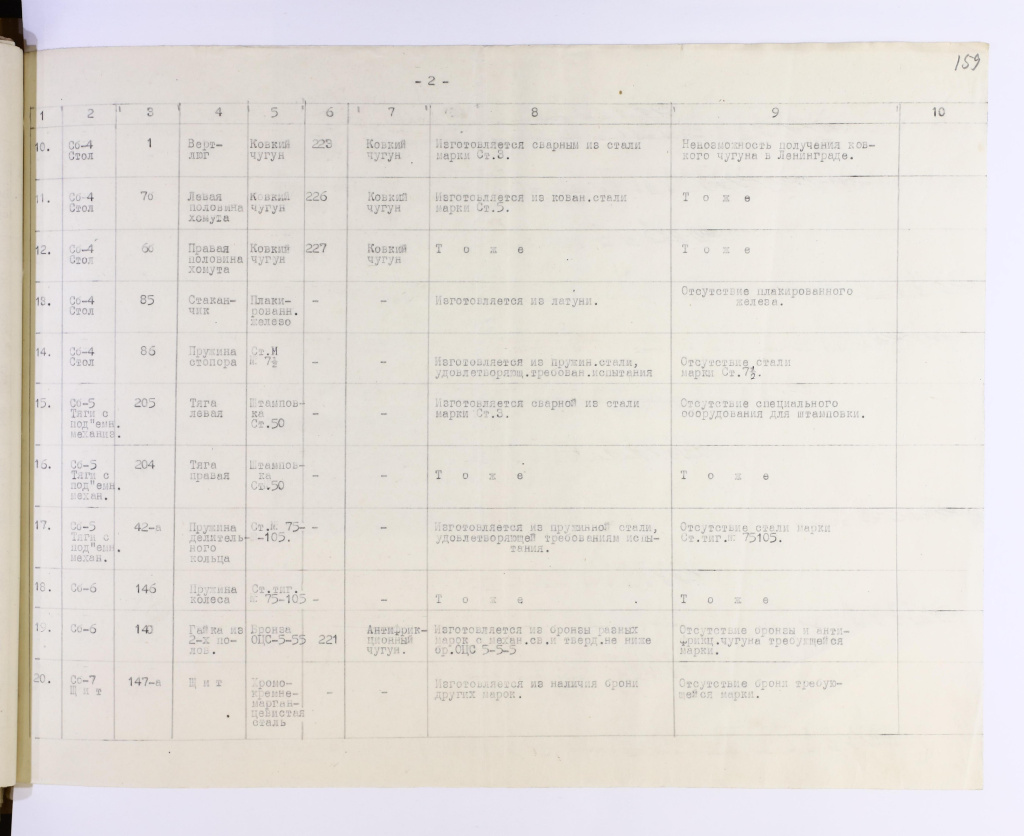 159
- 2 -
1 2 3 4 5 6 7 8 9 10
10. Сб-4 Стол 1 Верт-люг Ковкий чугун 223 Ковкий чугун Изготовляется сварным из стали марки Ст.3. Невозможность получения ков-кого чугуна в Ленинграде.
11. Сб-4 Стол 76 Левая половина хомута Ковкий чугун 226 Ковкий чугун Изготовляется из кован.стали марки Ст.5. Т о ж е
12. Сб-4 Стол 60 Правая половина хомута Ковкий чугун 227 Ковкий чугун Т о ж е Т о ж е
13. Сб-4 Стол 85 Стакан-чик Плаки-рованн. железо - - Изготовляется из латуни. Отсутствие плакированного железа.
14. Сб-4 Стол 86 Пружина стопора Ст.М № 7½ - - Изготовляется из пружин.стали, удовлетворяющ.требован.испытания Отсутствие стали марки Ст.7½.
15. Сб-5 Тяги с под"емн. механизм. 205 Тяга левая Штампов-ка Ст.50 - - Изготовляется сварной из стали марки Ст.3. Отсутствие специального оборудования для штамповки.
16. Сб-5 Тяги с под"емн. механ. 204 Тяга правая Штампов-ка Ст.50 - - Т о ж е Т о ж е
17. Сб-5 Тяги с под"емн. механ. 42-а Пружина делитель-ного кольца Ст.№ 75--105. - - Изготовляется из пружинной стали, удовлетворяющей требованиям испы-тания. Отсутствие стали марки Ст.тиг.№ 75105.
18. Сб-6 146 Пружина колеса Ст.тиг. № 75-105 - - Т о ж е Т о ж е
19. Сб-6 140 Гайка из 2-х по-лов. Бронза ОЦС-5-55 221 Антифрик-ционный чугун. Изготовляется из бронзы разных марок с механ.св.и тверд.не ниже бр.ОЦС 5-5-5 Отсутствие бронзы и анти-фрикц.чугуна требующейся марки.
20. Сб-7 Щ и т 147-а Щ и т Хромо-кремне-марган-цевистая сталь - - Изготовляется из наличия брони других марок. Отсутствие брони требую-щейся марки.